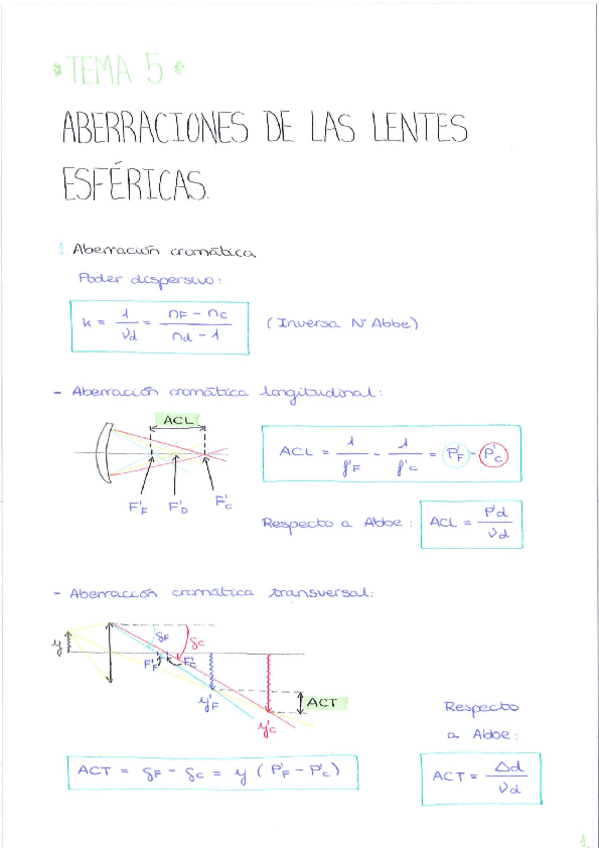 * TEMA 5 *
ABERRACIONES DE LAS LENTES
ESFÉRICAS.
1. Aberración cromática
Poder dispersivo:
K = 1/νd = (nF - nc)/(nd - 1) (Inversa Nº Abbe)
- Aberración cromática longitudinal:
ACL
F'F F'D F'c
ACL = 1/f'F - 1/f'c = P'F - P'c
Respecto a Abbe: ACL = P'd/νd
- Aberración cromática transversal:
y δF δc
F'F F'c
y'F y'c ACT
Respecto
a Abbe:
ACT = δF - δc = y (P'F - P'c)
ACT = Δd/νd
1.